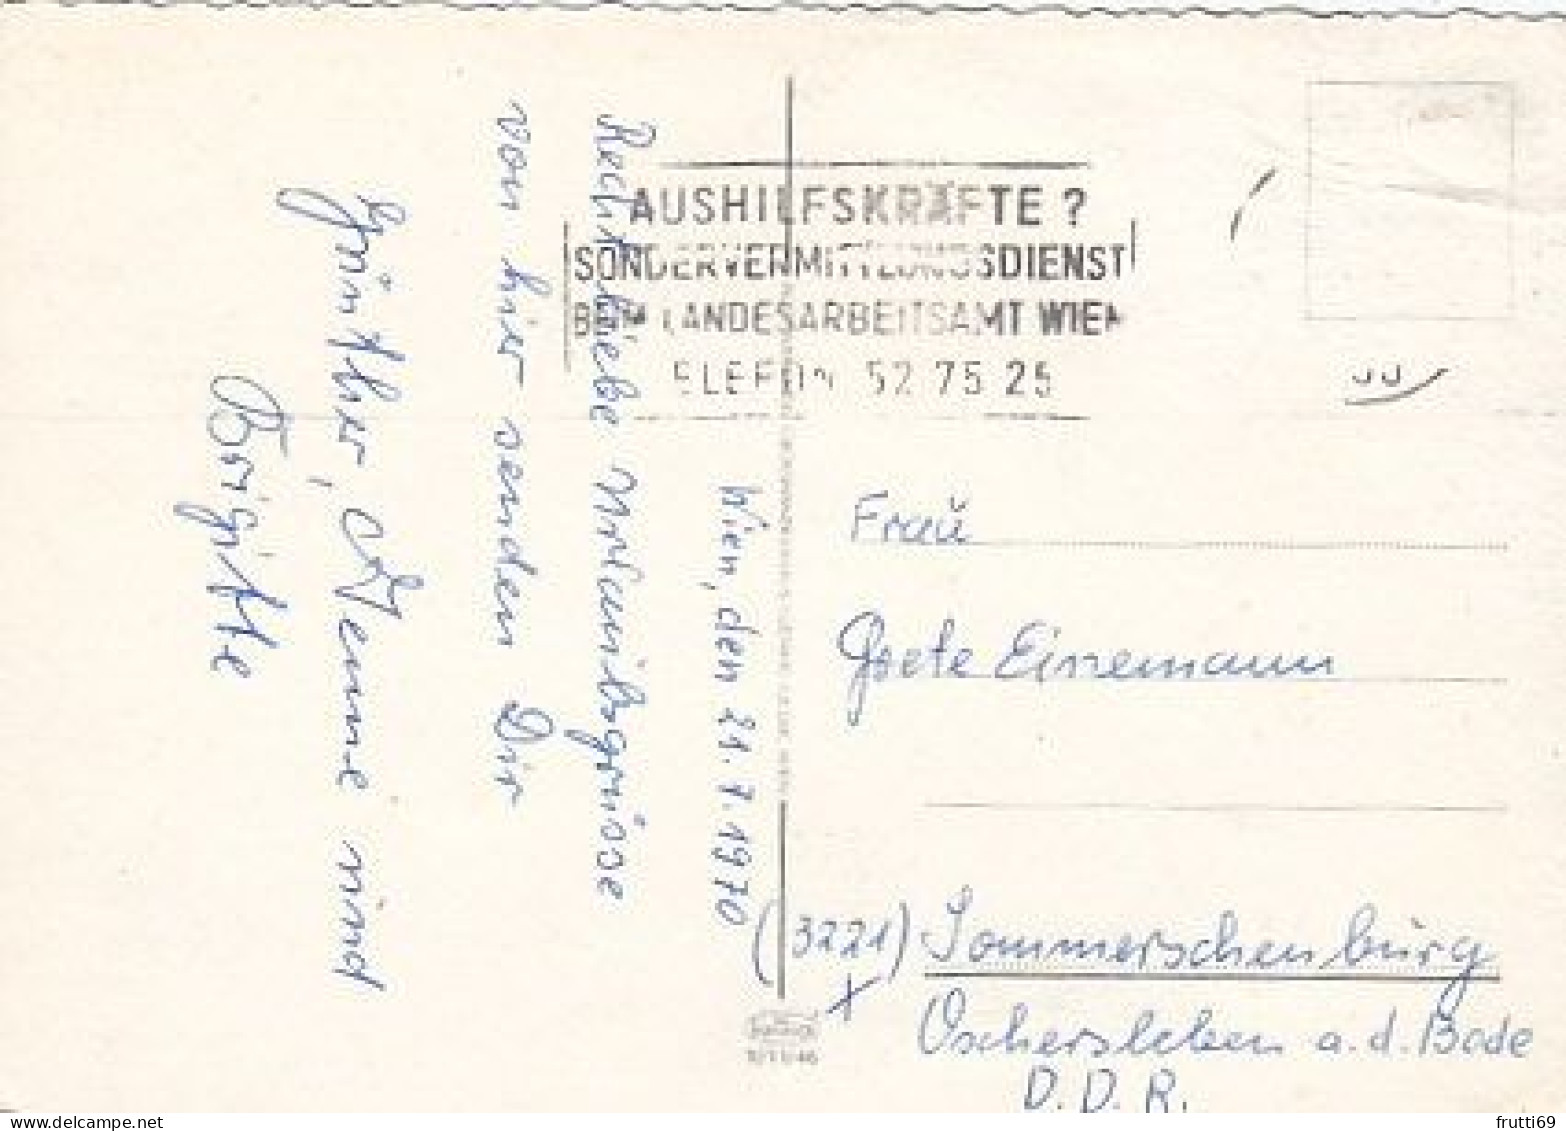 AUSHILFSKRÄFTE ?
SONDERVERMITTLUNGSDIENST
BEIM LANDESARBEITSAMT WIEN
TELEFON 52 75 25
Wien, den 21.7.1970
Recht liebe Urlaubsgrüsse
von hier senden Dir
Günther, und
Brigitte
Fraŭ
Grete Einemann
(3221) Sommerschenbŭrg
Oschersleben a.d. Bode
D.D.R.
frutti69